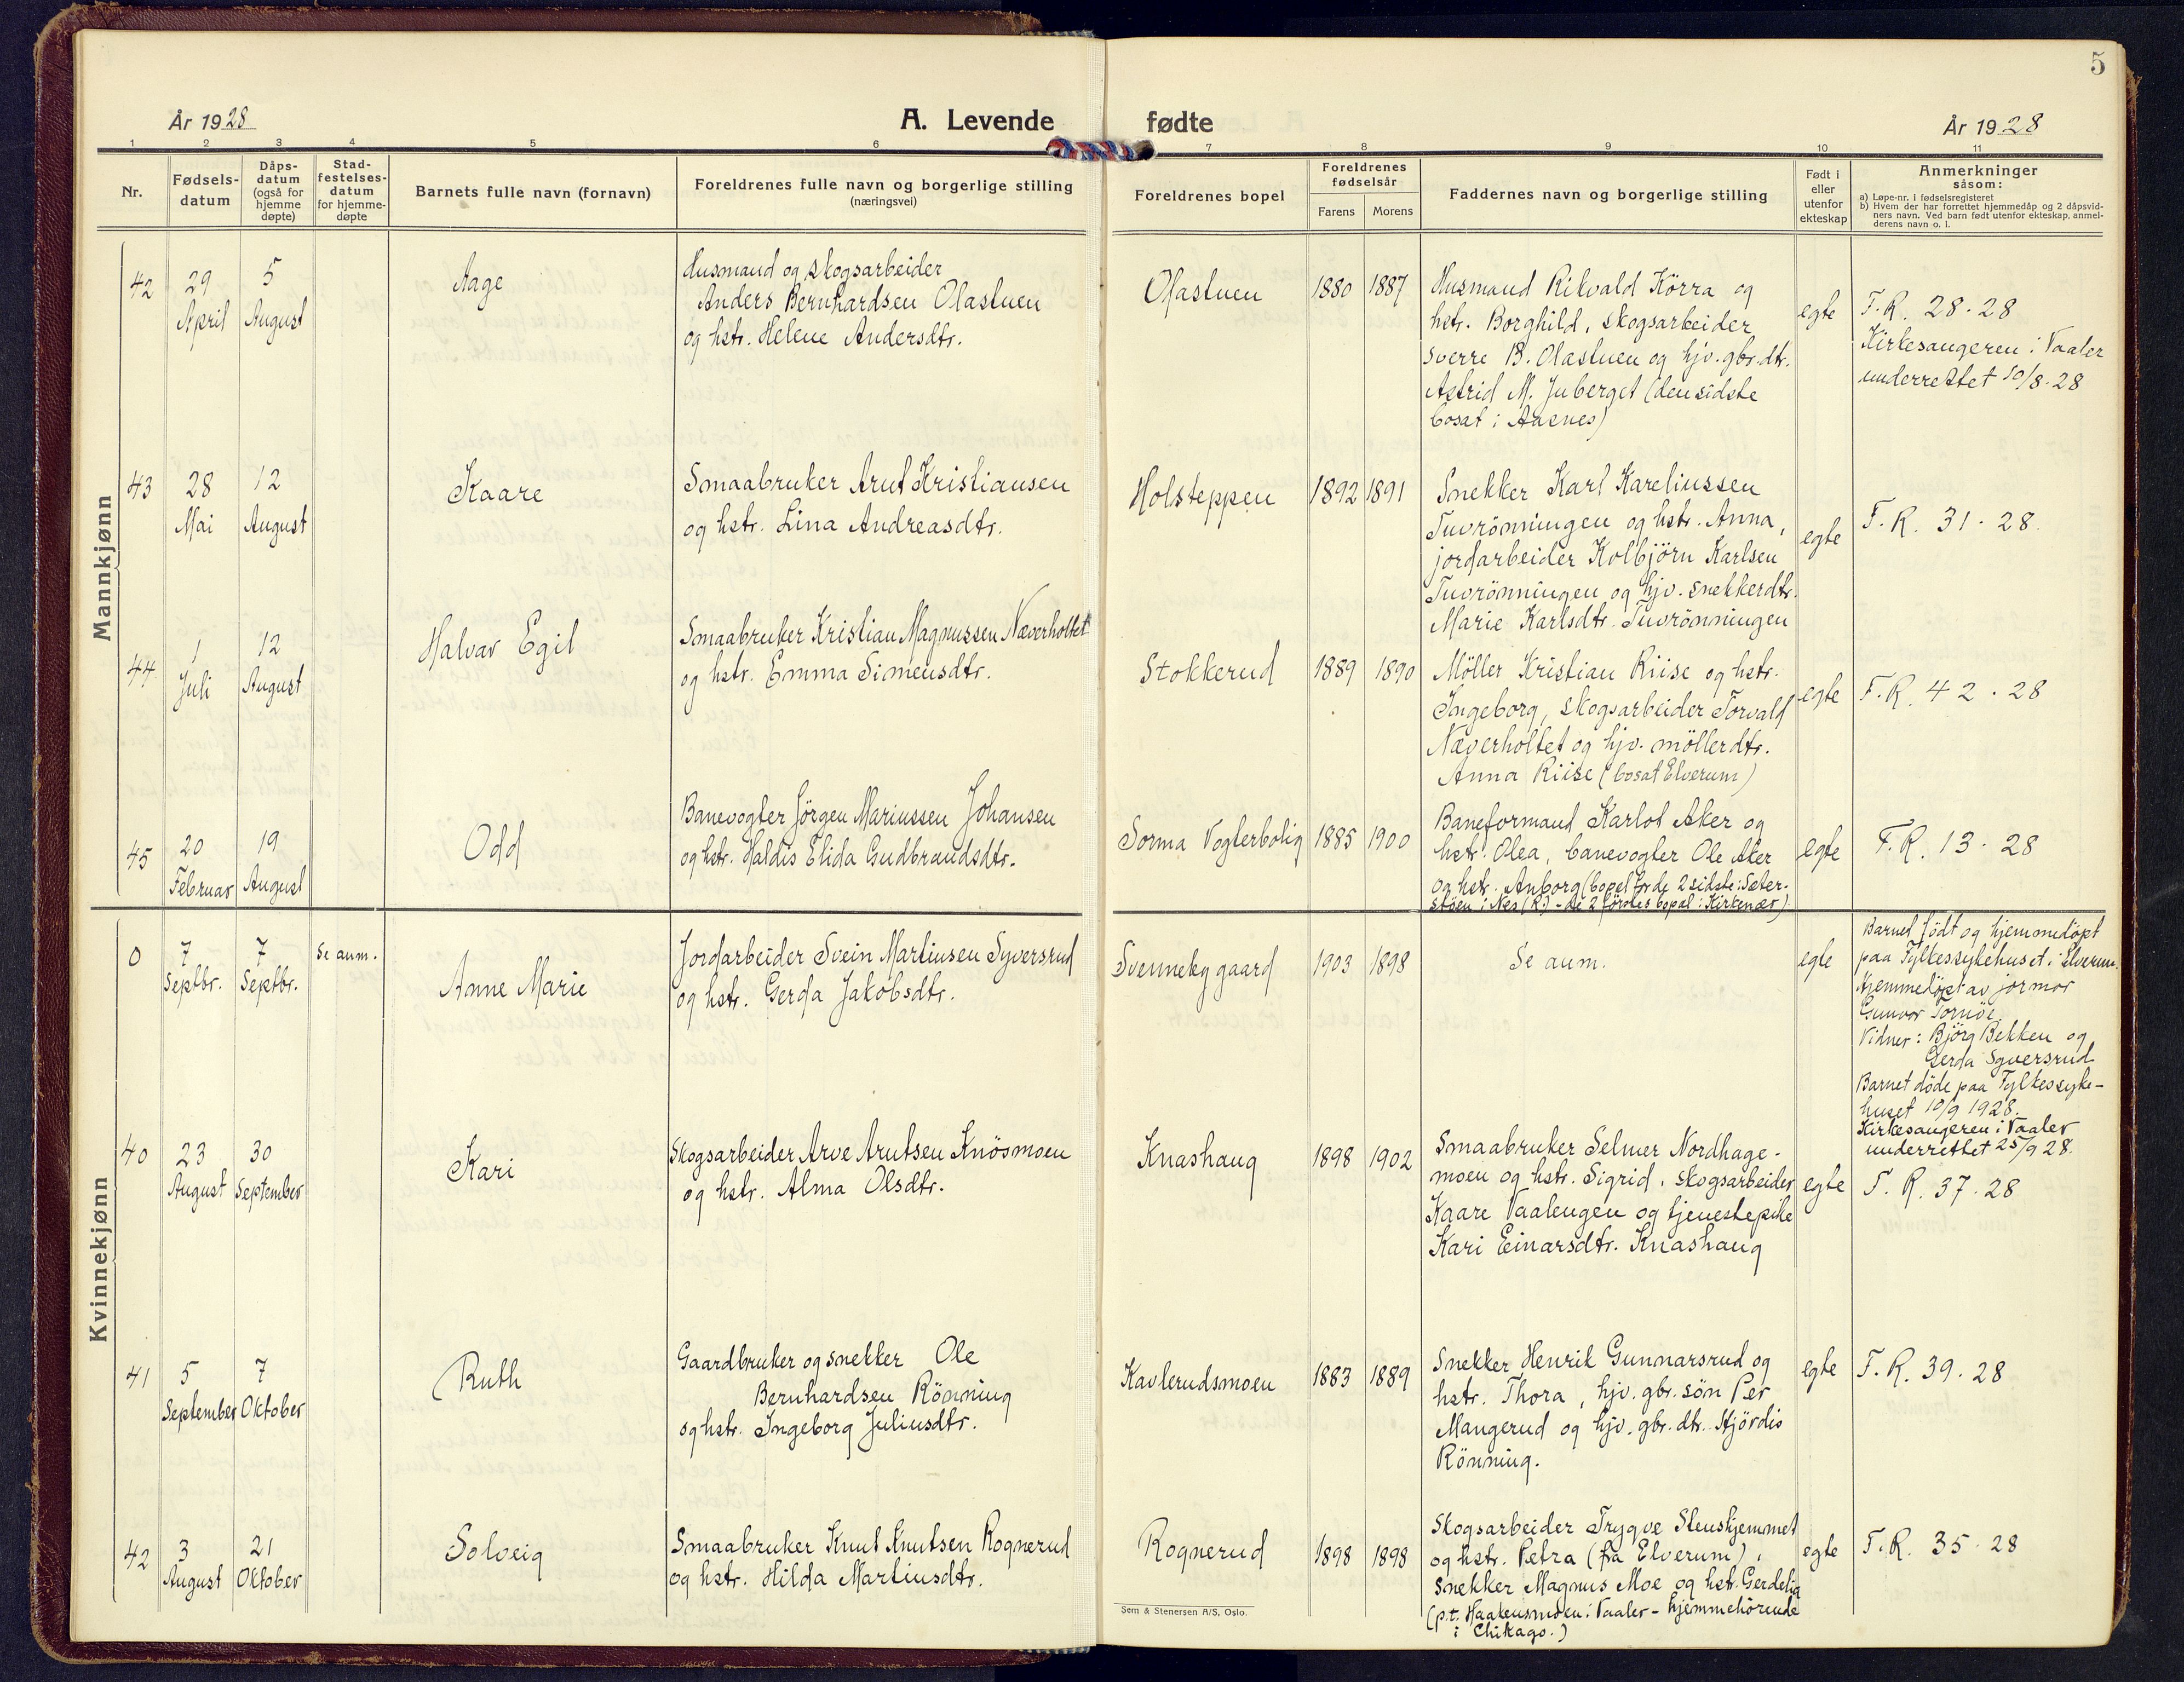 5
År 1928
A. Levende fødte
År 1928
1 2 3 4 5 6 7 8 9 10 11
Nr.
Fødsels-
datum
Dåps-
datum
(også for
hjemme
døpte)
Stad-
festelses-
datum
for hjemme-
døpte
Barnets fulle navn (fornavn)
Foreldrenes fulle navn og borgerlige stilling
(næringsvei)
Foreldrenes bopel
Foreldrenes
fødselsår
Farens Morens
Faddernes navn og borgerlige stilling
Født i
eller
utenfor
ekteskap
Anmerkninger
såsom:
a) Løpe-nr. i fødselsregisteret
b) Hvem der har forrettet hjemmedåp og 2 dåpsvid-
ners navn. Ved barn født utenfor ekteskap, anmel-
derens navn o. l.
Mannkjønn
42
29
April
5
August
Aage
Husmand og skogsarbeider
Anders Bernhardsen Olastuen
og hstr. Helene Andersdtr.
Olastuen
1880 1887
Husmand Rikvald Körra og
hstr. Borghild, skogsarbeider
Sverre B. Olastuen og hjv. gbr. dtr.
Astrid M. Juberget (den sidste
bosat i Aasnes)
egte
F.R. 28-28
Kirkesangeren i Vaaler
underrettet 10/8-28
43
28
Mai
12
August
Kaare
Smaabruker Arnt Kristiansen
og hstr. Lina Andreasdtr.
Holsteppen
1892 1891
Snekker Karl Kareliussen
Tuvrönningen og hstr. Anna,
jordarbeider Kolbjörn Karlsen
Tuvrönningen og hjv. snekkerdtr.
Marie Karlsdtr. Tuvrönningen
egte
F.R. 31-28.
44
1
Juli
12
August
Halvar Egil
Smaabruker Kristian Magnussen Næverholtet
og hstr. Emma Simensdtr.
Stokkerud
1889 1890
Möller Kristian Riise og hstr.
Ingeborg, skogsarbeider Torvald
Næverholtet og hjv. möllerdtr.
Anna Riise (bosat Elverum)
egte
F.R. 42-28
45
20
Februar
19
August
Odd
Banevogter Jörgen Mariussen Johansen
og hstr. Haldis Elida Gudbrandsdtr.
Sorma Vogterbolig
1885 1900
Baneformand Karlot Aker og
hstr. Olea, banevogter Ole Aker
og hstr. Anborg (bopel for de 2 sidste: Seter-
støen i Nes (R.) - de 2 förstes bopel: Kirkenær)
egte
F.R. 13-28
Kvinnekjønn
0
7
Septbr.
7
Septbr.
Se anm.
Anne Marie
Jordarbeider Svein Martinsen Syversrud
og hstr. Gerda Jakobsdtr.
Svennebygaard
1903 1898
Se anm.
egte
Barnet födt og hjemmedöpt
paa Fylkessykehuset i Elverum.
Hjemmedöpt av jormor
Gunvor Tornöe.
Vidner: Björg Bekken og
Gerda Syversrud
Barnet döde paa Fylkessyke-
huset 10/9 1928.
Kirkesangeren i Vaaler
underrettet 25/9 28.
40
23
August
30
September
Kari
Skogsarbeider Arve Arntsen Knösmoen
og hstr. Alma Olsdtr.
Knashaug
1898 1902
Smaabruker Selmer Nordhage-
moen og hstr. Sigrid, skogsarbeider
Kaare Vaalengen og tjenestepike
Kari Einarsdtr. Knashaug
egte
F.R. 37-28
41
5
September
7
Oktober
Ruth
Gaardbruker og snekker Ole
Bernhardsen Rönning
og hstr. Ingeborg Juliusdtr.
Kavlerudsmoen
1883 1889
Snekker Henrik Gunnarsrud og
hstr. Thora, hjv. gbr. søn Per
Mangerud og hjv. gbr. dtr. Hjördis
Rönning.
egte
F.R. 39-28
42
3
August
21
Oktober
Solveig
Smaabruker Knut Knutsen Rognerud
og hstr. Hilda Martinsdtr.
Rognerud
1898 1898
Skogsarbeider Trygve Stenshjemmet
og hstr. Petra (fra Elverum),
snekker Magnus Moe og hstr. Gerdelia
(p.t. Haakensmoen i Vaaler - hjemmehörende
i Chikago.)
egte
F.R. 35-28
Sem & Stenersen A/S, Oslo.